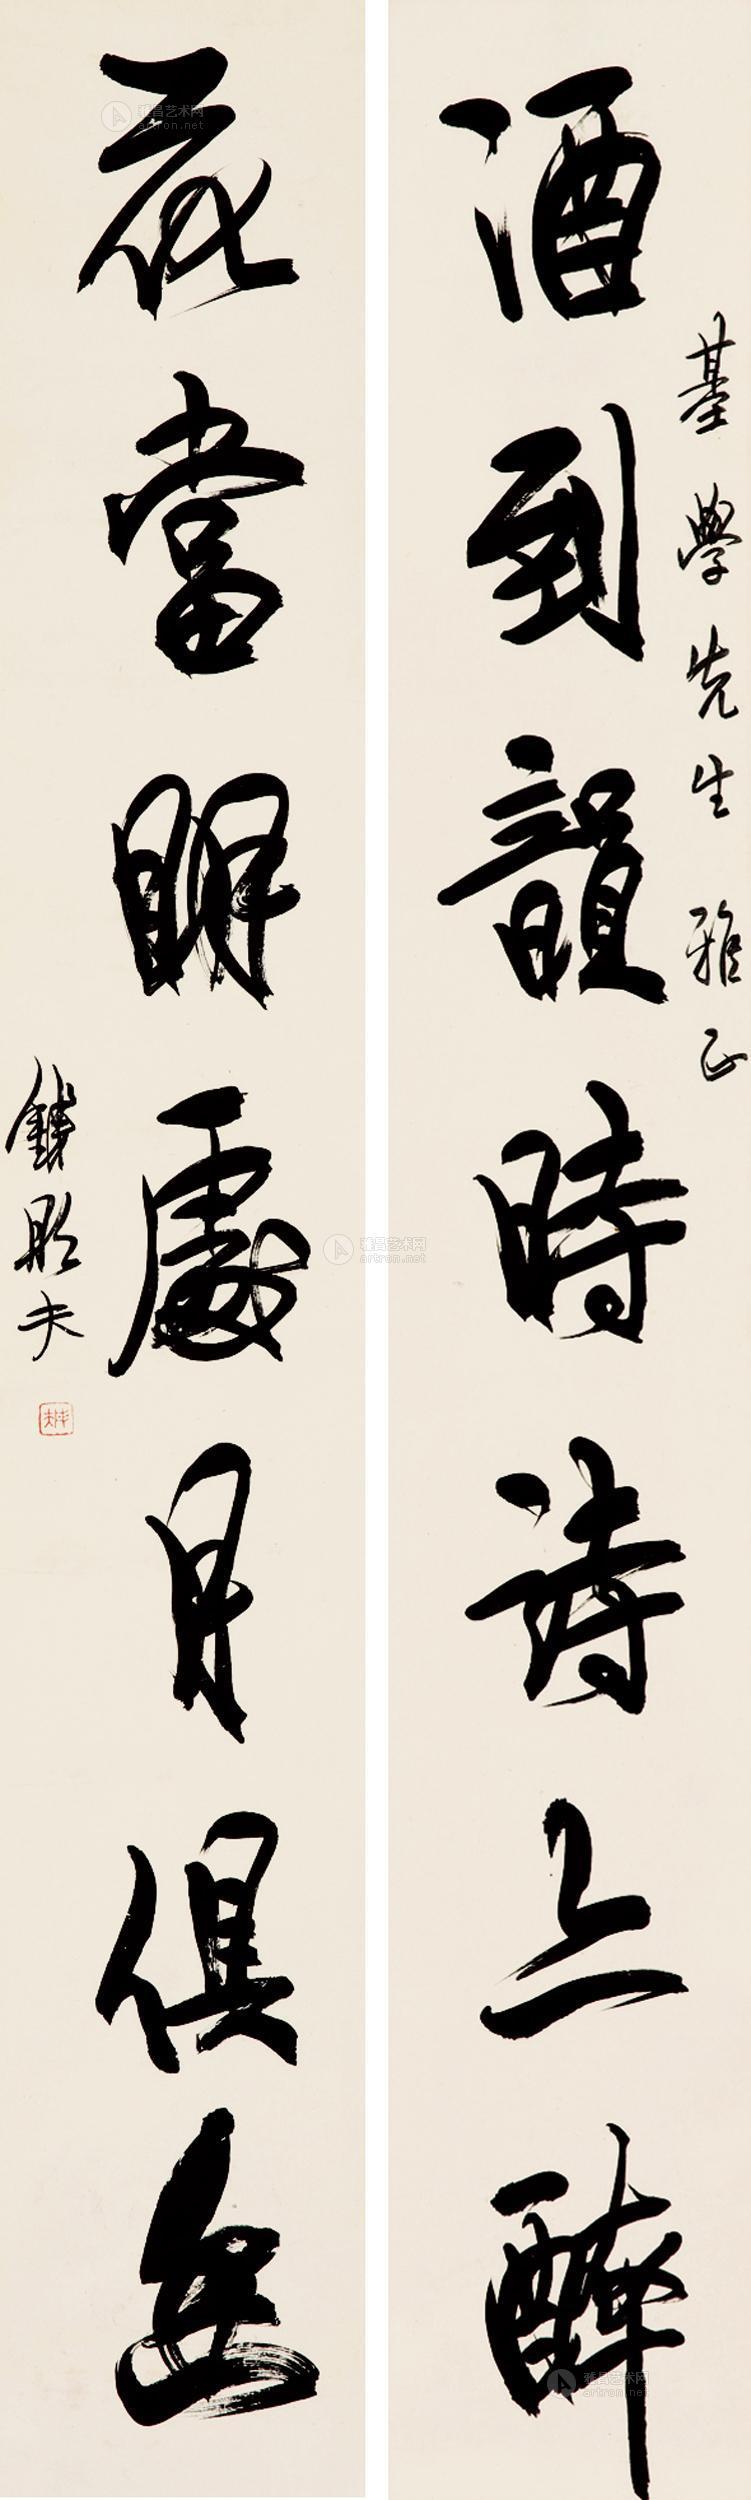 基學先生 雅正
酒到韻時詩上醉
花當眀處月俱
夫
雅昌艺术网
artron.net
雅昌艺术网
artron.net
雅昌艺术网
artron.net